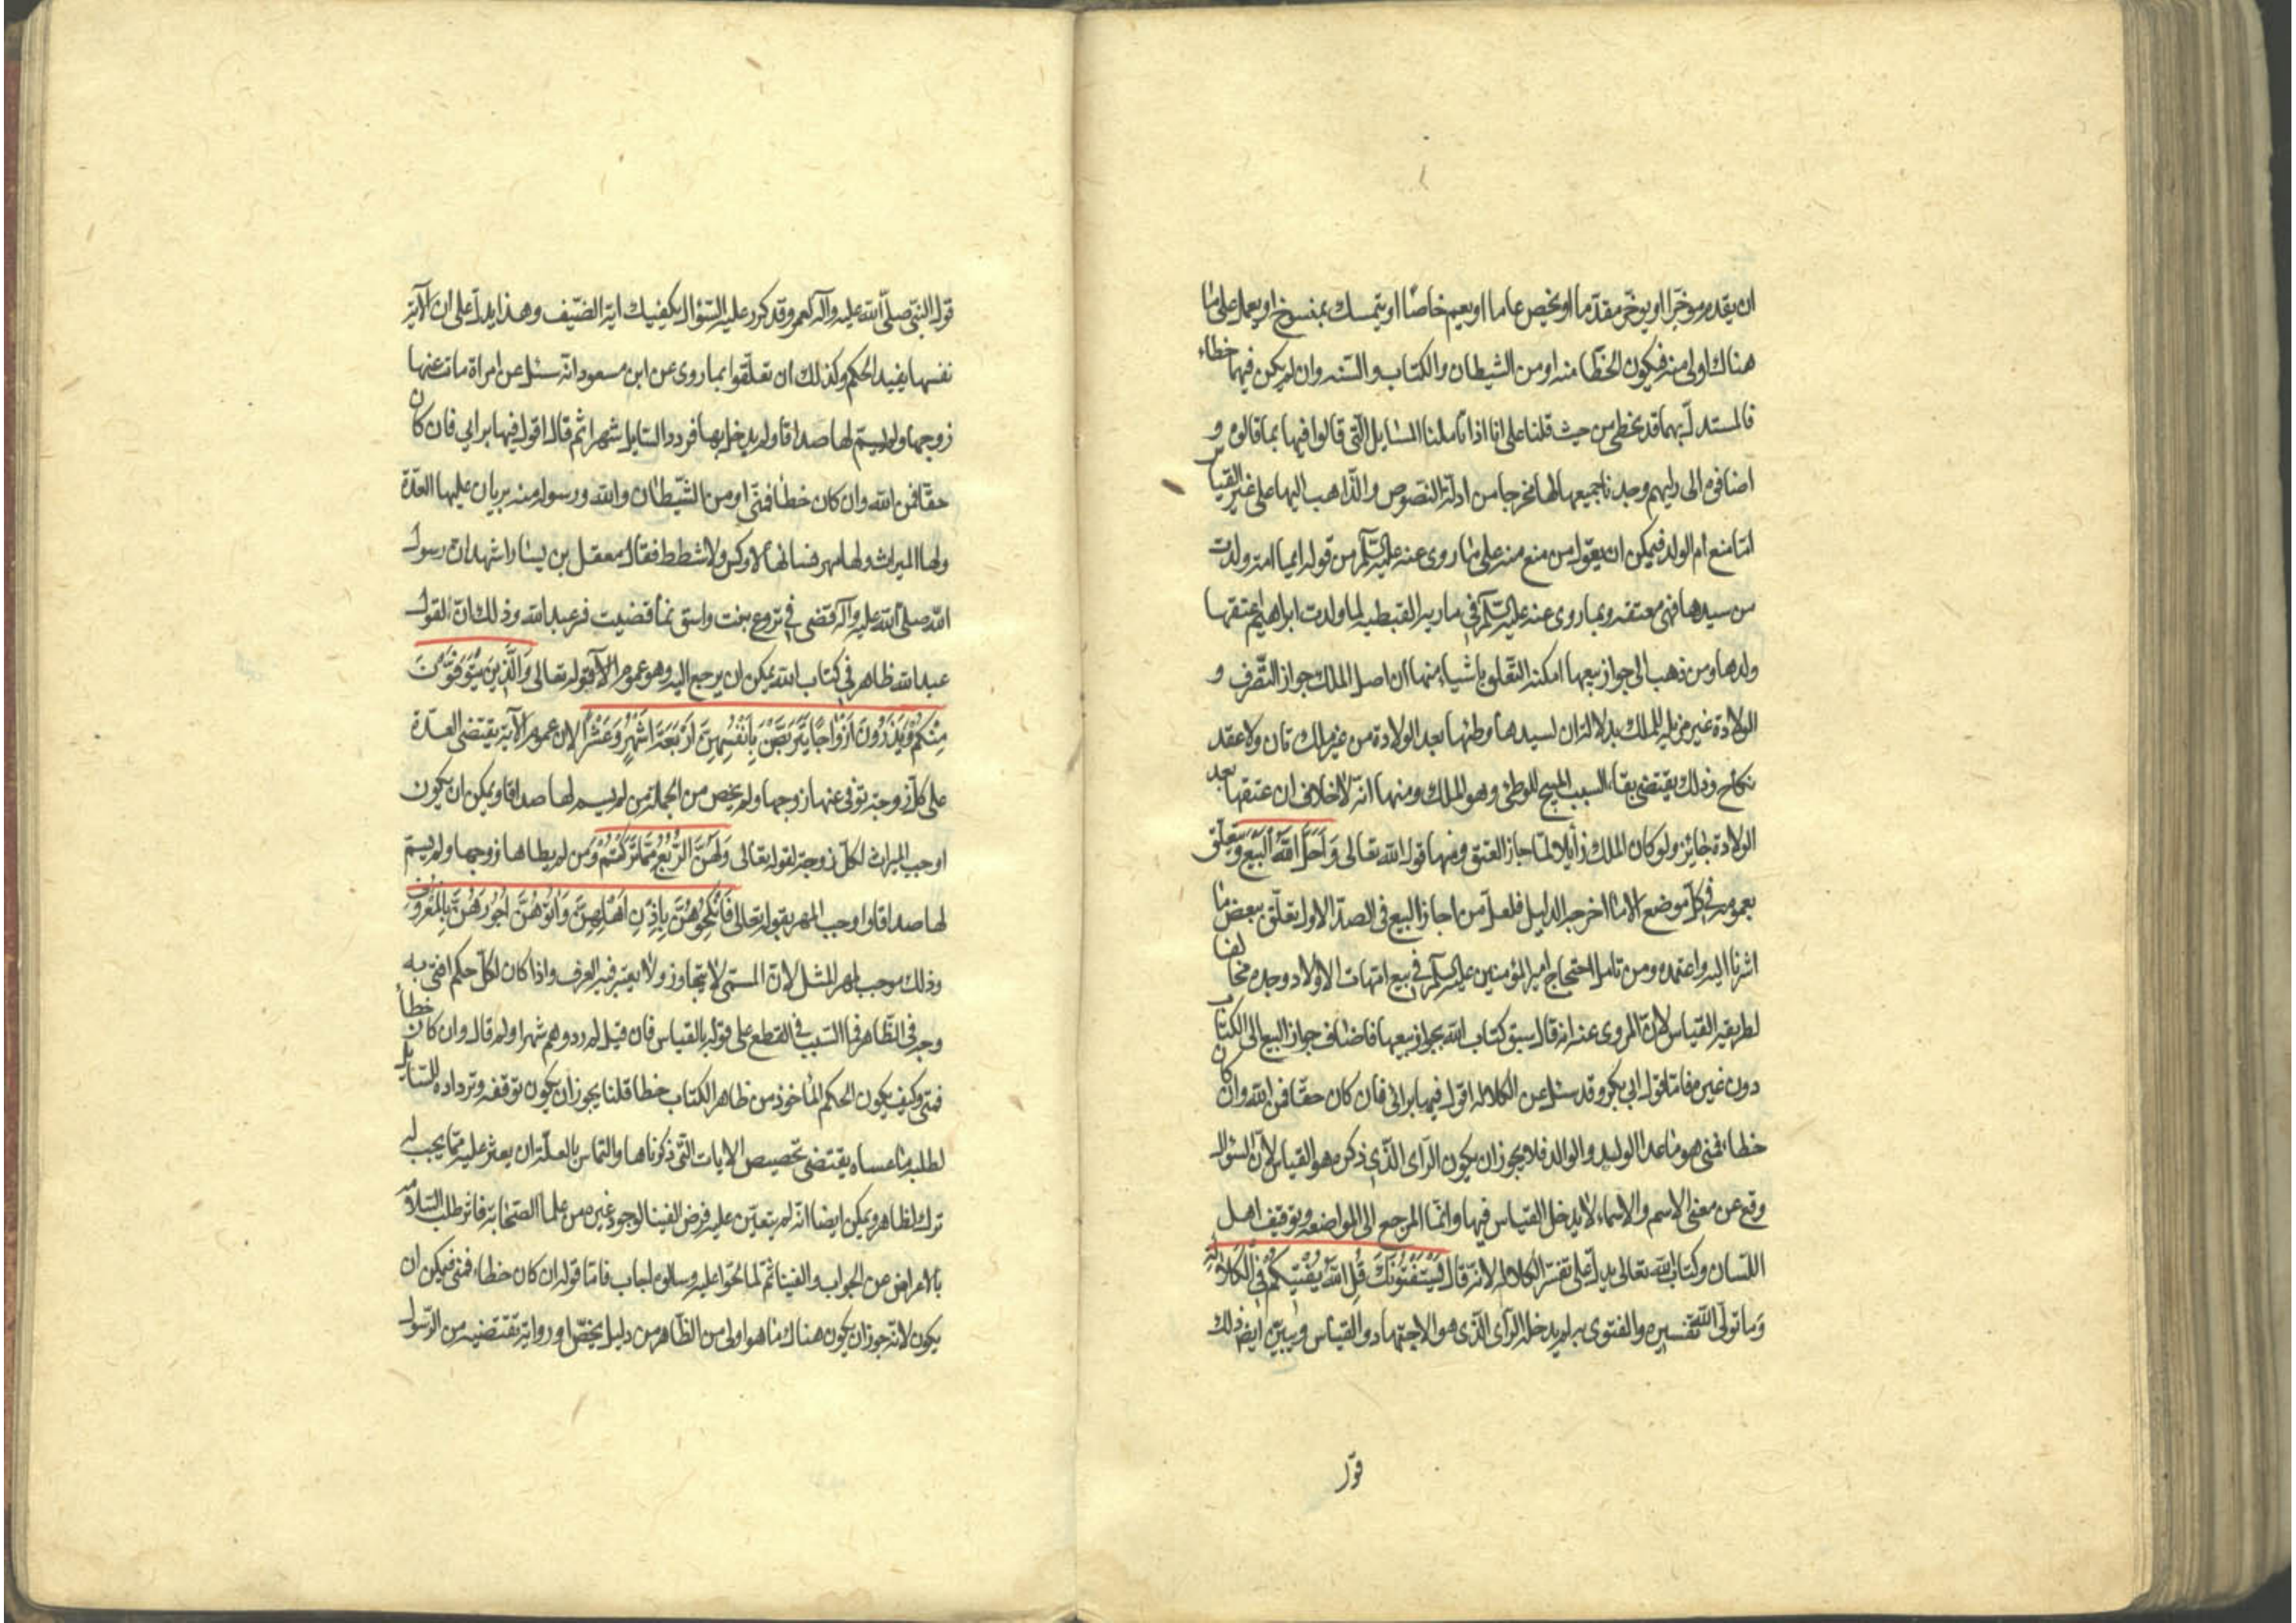 ان يقدم موخّرا او يوخّر مقدّما او يخص عاما او يعيم خاصّا او يتمسك بمنسوخ او يعمل على ما
هناك اولى منه فيكون الخطا منه او من الشيطان والكتاب والسنه وان لم يكن فيهما خطاء
فالمستدلّ بهما قد يخطى من حيث قلنا على انا اذا تاملنا المسايل التى قالوا فيها بما قالوه و
اضافوه الى رايهم وجدنا جميعها لها مخرجا من ادلّة النصوص والذاهب اليها على غير القياس
امّا منع ام الولد فيمكن ان يعوّل من منع منه على ما روى عنه عليه السّلم من قوله ايما امة ولدت
من سيدها فهى معتقه وبما روى عنه عليه السّلم فى ماريه القبطيه لما ولدت ابراهيم اعتقها
ولدها ومن ذهب الى جواز بيعها امكنه التّعلق باشياء منها ان اصل الملك جواز التصّرف و
الولادة غير مزيله للملك بدلالة ان لسيدها وطئها بعد الولادة من غير ملك ثان ولا عقد
نكاح وذلك يقتضى بقاء السبب المبيح للوطى وهو الملك ومنها انه لا خلاف فى ان عتقها بعد
الولادة جايز ولو كان الملك زايلا لما جاز العتق ومنها قوله الله تعالى وَاَحَلَّ اللّهُ الْبَيْعَ ويتعلّق
بعمومه فى كلّ موضع الا ما اخرجه الدليل فلعلّ من اجاز البيع فى الصدر الاول تعلّق ببعض ما
اشرنا اليه واعتمده ومن تامل احتجاج امير المؤمنين عليه السّلم فى بيع امّهات الاولاد وجده مخالفا
لطريقه القياس لانّ المروى عنه انه قال سبق كتاب الله بجواز بيعها فاضاف جواز البيع الى الكتاب
دون غيره فامّا قول ابى بكر وقد سئل عن الكلاله اقول فيها برائى فان كان حقّا فمن الله وان كان
خطاء فمنى هو ما عدا الوليد والوالد فلا يجوز ان يكون الرّاى الّذى ذكره هو القياس لانّ السؤال
وقع عن معنى الاسم والاسماء لا يدخل القياس فيها وانّما المرجع الى المواضعه وتوقيف اهل
اللّسان وكتاب الله تعالى يدلّ على تفسير الكلاله لانه قال يَسْتَفْتُونَكَ قُلِ اللّهُ يُفْتِيكُمْ فِى الْكَلَالَةِ
وما تولّى اللّه تفسيره والفتوى به لم يدخله الرّاى الّذى هو الاجتهاد والقياس ويبيّن ايضا ذلك
قول
قول النّبىّ صلّى اللّه عليه وآله لعمر وقد كرر عليه السّؤال يكفيك اية الصّيف وهذا يدلّ على ان الآية
نفسها يفيد الحكم وكذلك ان تعلّقوا بما روى عن ابن مسعود انّه سئل عن امراة مات عنها
زوجها ولم يسمّ لها صداقا ولم يدخل بها فردد السايل شهرا ثم قال اقول فيها برايى فان كان
حقّا فمن الله وان كان خطأ فمنّى او من الشّيطان والله ورسوله منه بريان عليها العدّة
ولها الميراث ولها مهر نسائها لا وكس ولا شطط فقال معقل بن يسار اشهد ان رسول
اللّه صلّى اللّه عليه وآله قضى فى تروع بنت واسق بما قضيت فسر عبدالله وذلك انّ القول
عبدالله ظاهر فى كتاب الله يمكن ان يرجع اليه وهو عموم الآ قوله تعالى وَالَّذِينَ يُتَوَفَّوْنَ
مِنْكُمْ وَيَذَرُونَ اَزْوَاجًا يَتَرَبَّصْنَ بِاَنْفُسِهِنَّ اَرْبَعَةَ اَشْهُرٍ وَعَشْرًا لان عموم الآية يقتضى العدّة
على كلّ زوجة توفى عنها زوجها ولم يخص من الجملة من لم يسم لها صداقا ويمكن ان يكون
اوجب الميراث لكلّ زوجة لقوله تعالى وَلَهُنَّ الرُّبُعُ مِمَّا تَرَكْتُمْ وَمن لم يطاها زوجها ولم يسمّ
لها صداقا واوجب المهر بقوله تعالى فَانْكِحُوهُنَّ بِاِذْنِ اَهْلِهِنَّ وَآتُوهُنَّ اُجُورَهُنَّ بِالْمَعْرُوفِ
وذلك موجب لمهر المثل لانّ المسمّى لا يتجاوز ولا يعتبر فيه العرف واذا كان لكلّ حكم افتى به
وجه فى الظّاهر فما السّبب فى القطع على قوله بالقياس فان قيل لم رددهم شهرا ولم قال وان كان خطأ
فمنّى وكيف يكون الحكم الماخوذ من ظاهر الكتاب خطا قلنا يجوز ان يكون توقفه وترداده للسّايل
لطلبه ما عساه يقتضى تخصيص الايات التّى ذكرناها والتماسا بالعلّة ان يعثر عليه ممّا يجب له
ترك لظاهر ويمكن ايضا انّه لم يتعيّن عليه فرض الفتيا لوجود غيره من علما الصّحابة فاثر طلب السّلامه
بالاعراض عن الجواب والفتيا ثمّ لما لحّوا عليه وسالوه اجاب فامّا قوله ان كان خطاء فمنى فيمكن ان
يكون لانّه جوز ان يكون هناك ما هو اولى من الظاهر من دليل يخصّه او رواية تقتضيه من الرّسول